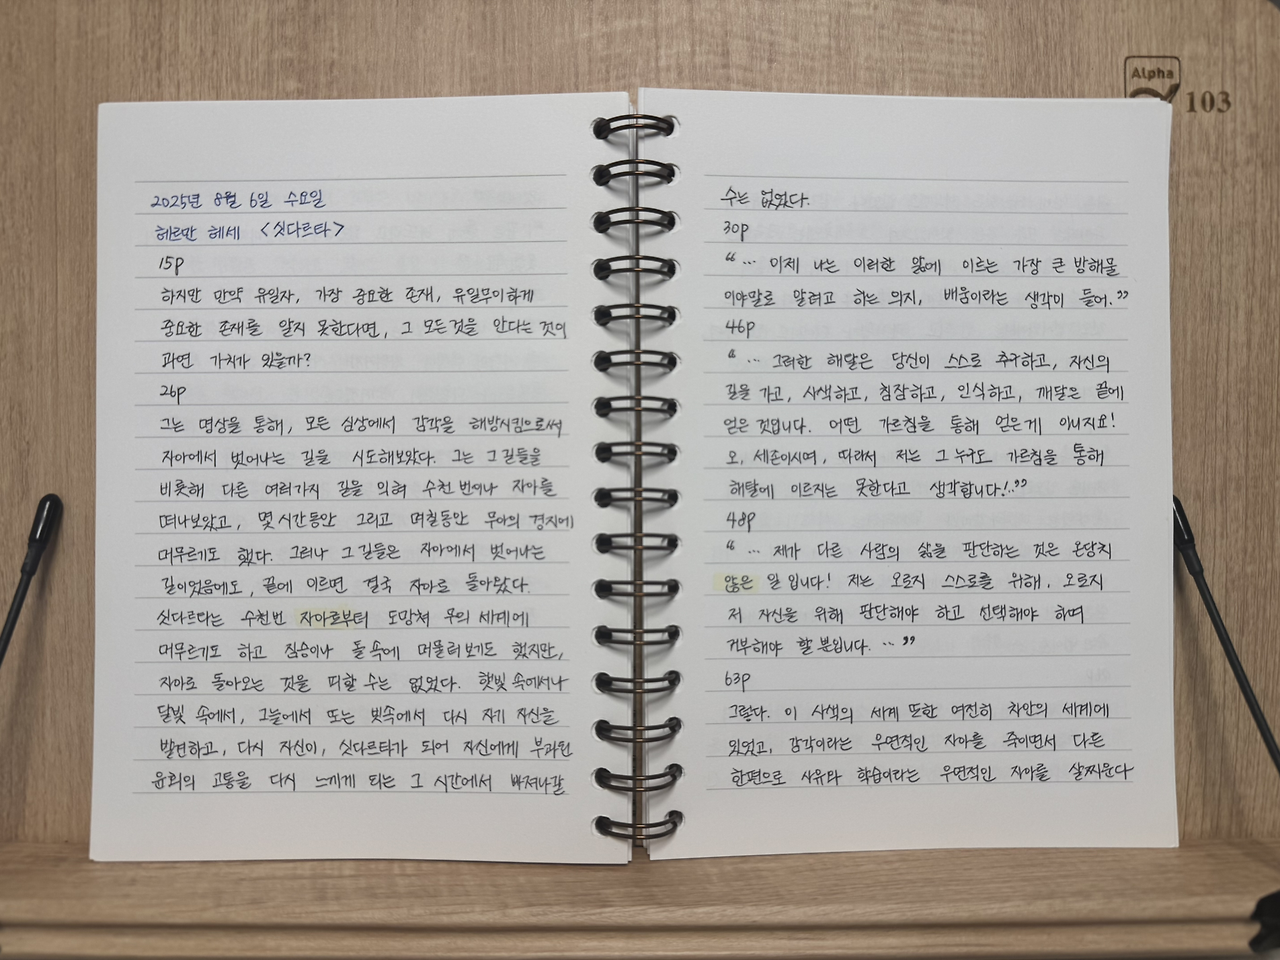 2025년 8월 6일 수요일
헤르만 헤세 <싯다르타>
15p
하지만 만약 유일자, 가장 중요한 존재, 유일무이하게
중요한 존재를 알지 못한다면, 그 모든것을 안다는 것이
과연 가치가 있을까?
26p
그는 명상을 통해, 모든 심상에서 감각을 해방시킴으로써
자아에서 벗어나는 길을 시도해보았다. 그는 그 길들을
비롯해 다른 여러가지 길을 익혀 수천 번이나 자아를
떠나보았고, 몇 시간동안 그리고 며칠동안 무아의 경지에
머무르기도 했다. 그러나 그 길들은 자아에서 벗어나는
길이었음에도, 끝에 이르면 결국 자아로 돌아왔다.
싯다르타는 수천번 자아로부터 도망쳐 무의 세계에
머무르기도 하고 짐승이나 돌 속에 머물러보기도 했지만,
자아로 돌아오는 것을 피할 수는 없었다. 햇빛 속에서나
달빛 속에서, 그늘에서 또는 빗속에서 다시 자기 자신을
발견하고, 다시 자신이, 싯다르타가 되어 자신에게 부과된
윤회의 고통을 다시 느끼게 되는 그 시간에서 빠져나갈
수는 없었다.
30p
“… 이제 나는 이러한 앎에 이르는 가장 큰 방해물
이야말로 알려고 하는 의지, 배움이라는 생각이 들어.”
46p
“… 그러한 해탈은 당신이 스스로 추구하고, 자신의
길을 가고, 사색하고, 침잠하고, 인식하고, 깨달은 끝에
얻은 것입니다. 어떤 가르침을 통해 얻은게 아니지요!
오, 세존이시여, 따라서 저는 그 누구도 가르침을 통해
해탈에 이르지는 못한다고 생각합니다!..”
48p
“… 제가 다른 사람의 삶을 판단하는 것은 온당치
않은 일 입니다! 저는 오로지 스스로를 위해, 오로지
저 자신을 위해 판단해야 하고 선택해야 하며
거부해야 할 뿐입니다. …”
63p
그렇다. 이 사색의 세계 또한 여전히 차안의 세계에
있었고, 감각이라는 우연적인 자아를 죽이면서 다른
한편으로 사유와 학습이라는 우연적인 자아를 살찌운다
Alpha
103